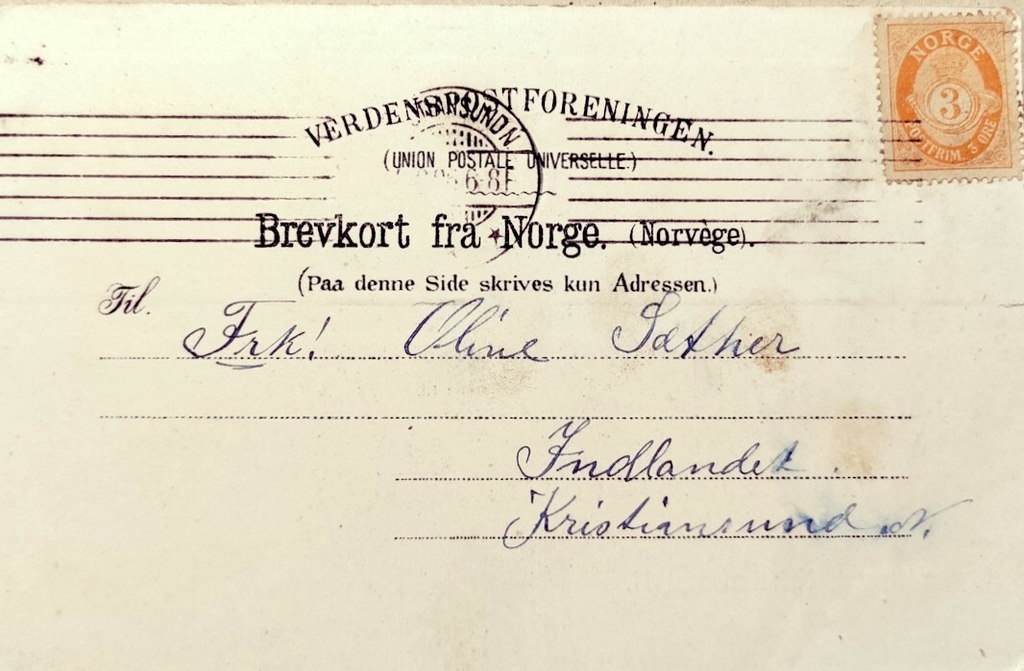 NORGE
3
POSTFRIM. 3 ØRE
VERDENSPOSTFORENINGEN.
(UNION POSTALE UNIVERSELLE.)
6-8
Brevkort fra Norge. (Norvège).
(Paa denne Side skrives kun Adressen.)
Til. Frk! Oline Sæther
Indlandet.
Kristiansund N.